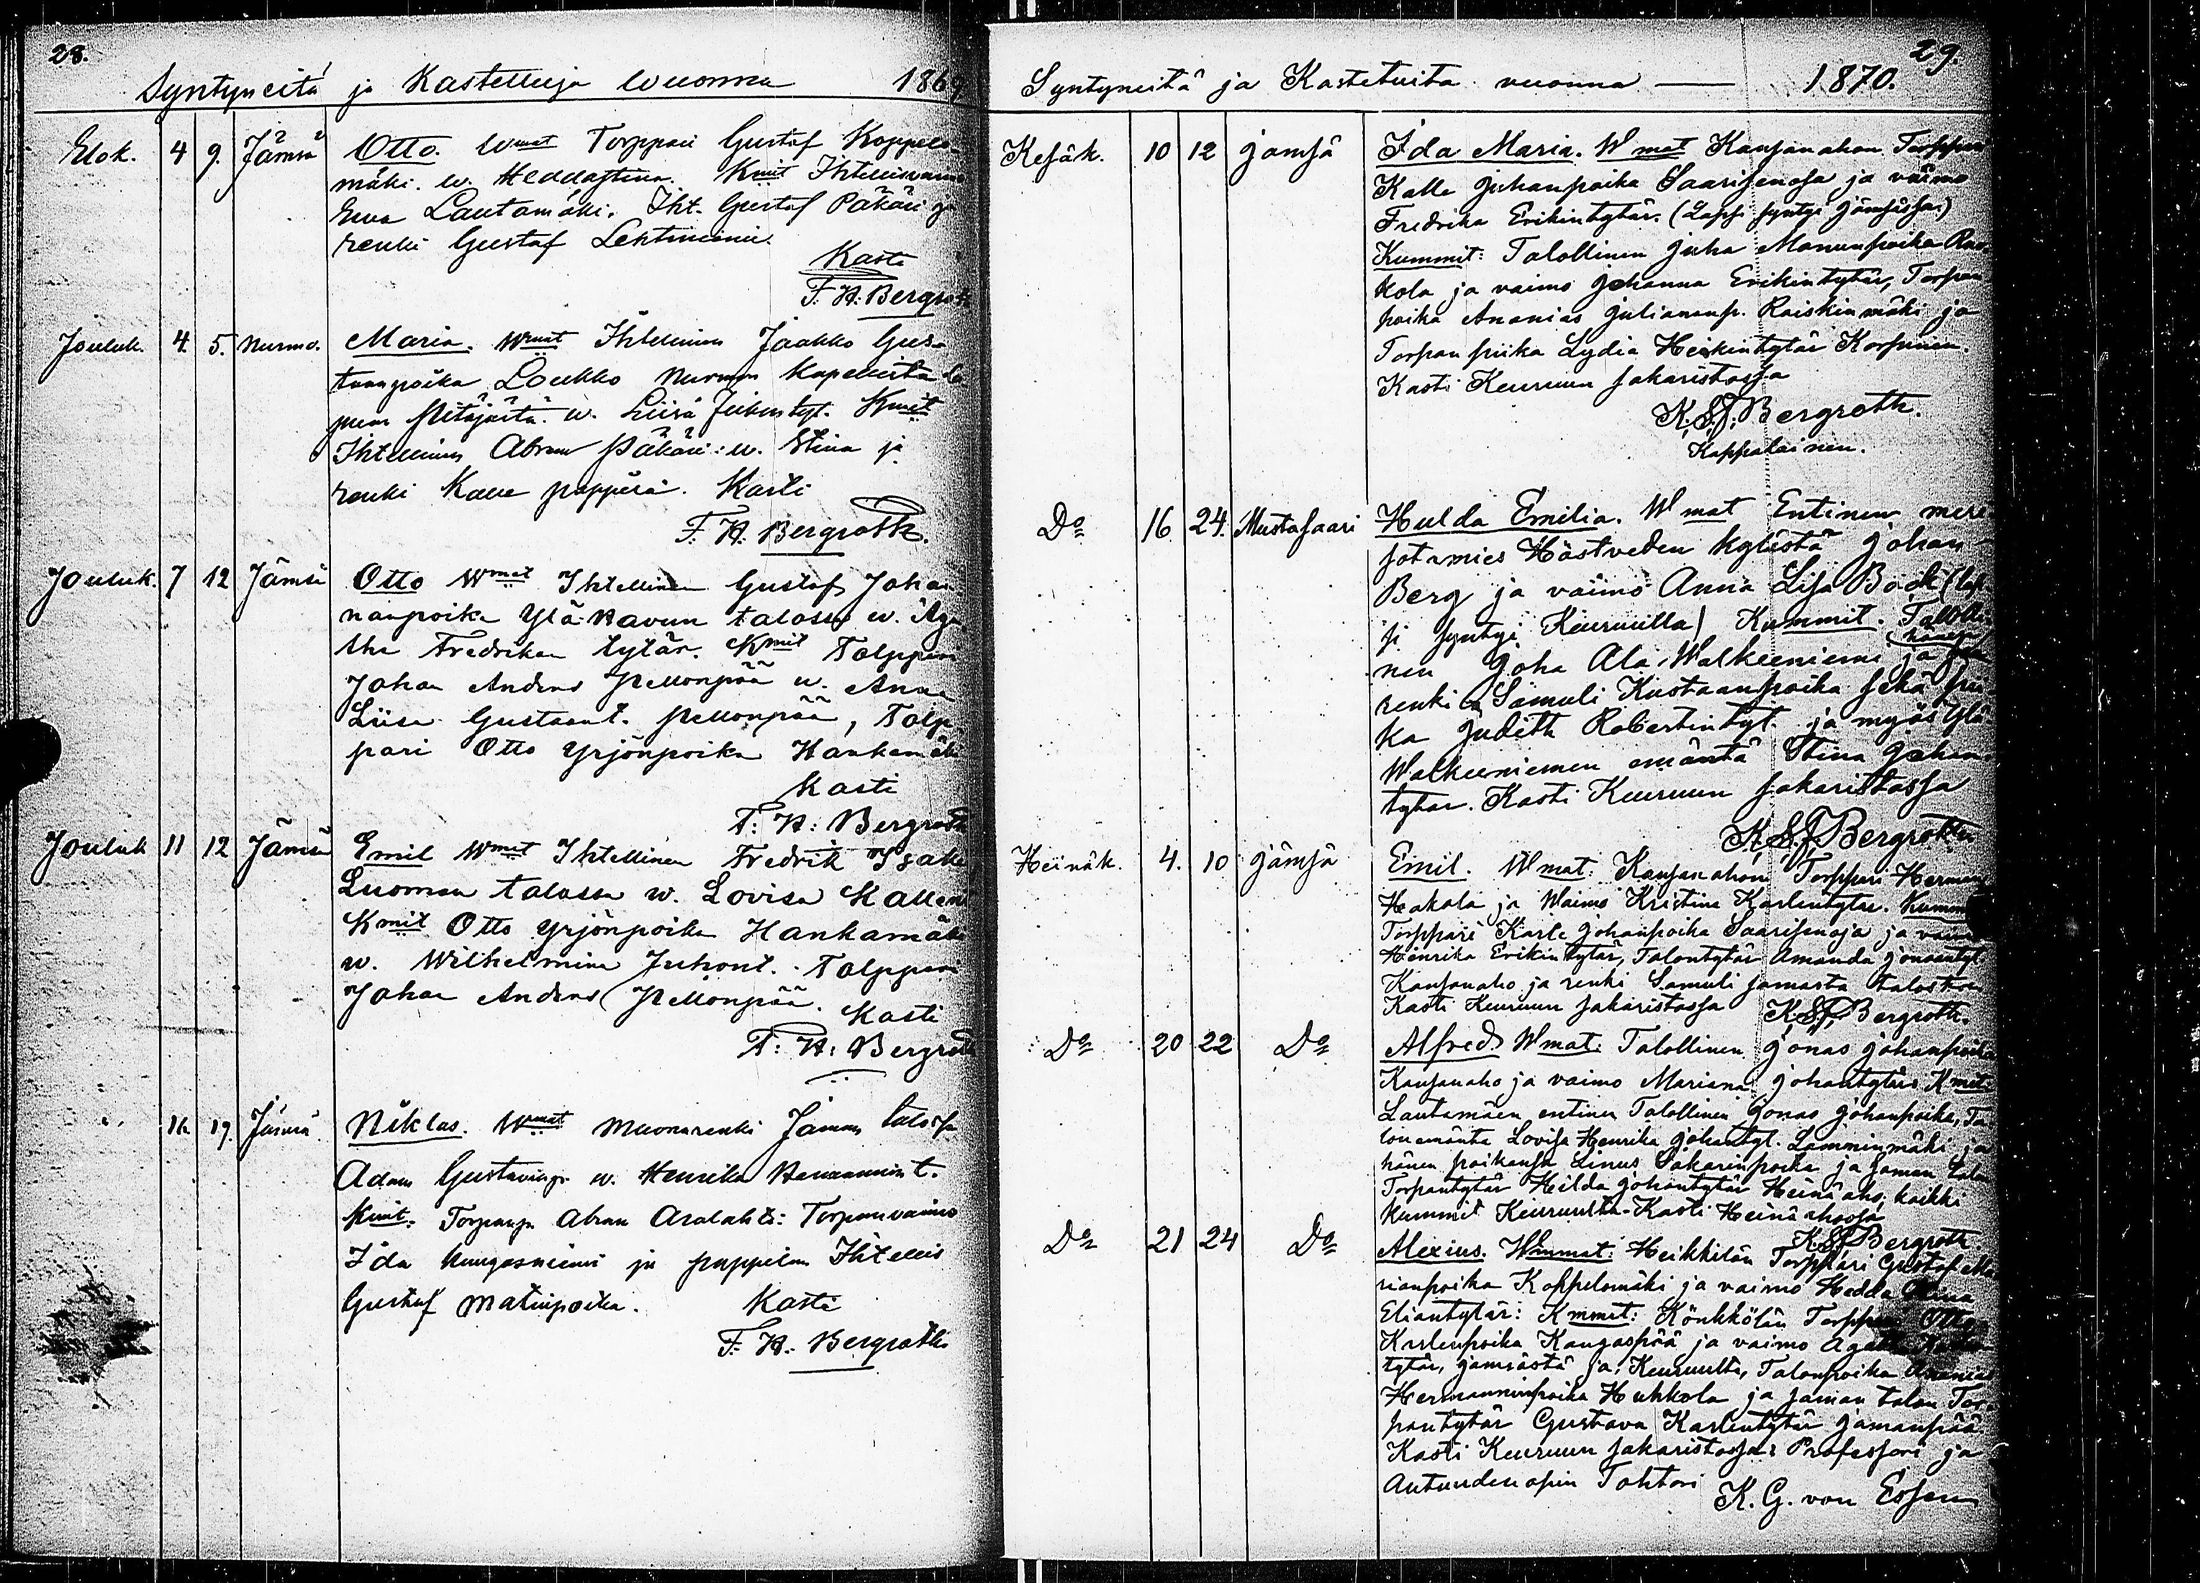 28.
Syntyneitä ja Kastettuja Wuonna 1869
Elok. 4 9. Jämsä Otto. Wmat Torppari Gustaf Koppelo-
mäki. w. Heddastina. Kmit Ihtellisvaimo
Ewa Lautamäki. Iht. Gustaf Päkäri ja
renki Gustaf Lehtiniemi.
Kasti
F. H. Bergroth
Jouluk. 4. 5. Nurmo. Maria. Wmat Ihtellinen Jaakko Gus-
taanpoika Loukko Nurmon Kapellista
pitäjästä. w. Liisa Juhontyt. Kmit
Ihtellinen Abram Päkäri: w. Stina ja
renki Kalle pappilasta. Kasti
F. H. Bergroth.
Jouluk. 7 12 Jämsä Otto Wmat Ihtellinen Gustaf Johan
nanpoika Ylä-Kavun talossa w. Aga
tha Fredrikan tytär. Kmit Torppari
Johan Anders Pellonpää w. Anna
Liisa Gustaant. Pellonpää, Torp-
pari Otto Yrjönpoika Hankamäki
Kasti
F. H. Bergroth
Jouluk 11 12 Jämsä Emil Wmat Ihtellinen Fredrik Isak
Luoman talossa w. Lovisa Kallent
Kmit Otto Yrjönpoika Hankamäki
w. Wilhelmina Juhont. Torppari
Johan Anders Pellonpää.
Kasti
F. H. Bergroth
16 19. Jämsä Niklas. Wmat Muonarenki Jämsän talossa
Adam Gustavinp. w. Henrika Hermannint.
Kmit. Torpanp. Abram Aralahti: Torpanvaimo
Ida Kangasniemi ja pappilan Ihtellis
Gustaf Matinpoika. Kasti
F. H. Bergroth
29.
Syntyneitä ja Kastetuita vuonna — 1870.
Kesäk. 10 12 Jämsä Ida Maria. Wmat Kansanahon Torppari
Kalle Juhanpoika Saarisenoja ja vaimo
Fredrika Erikintytär. (Lapsi syntyi Jämsässä.)
Kummit: Talollinen Juha Manunpoika
kola ja vaimo Johanna Erikintytär, Torpan
poika Ananias Juliananp. Raiskinmäki ja
Torpan piika Lydia Heikintytär Korpinen.
Kasti Keuruun Sakaristossa
K. S. J. Bergroth.
Kappalainen.
Do 16. 24. Mustasaari Hulda Emilia. Wmat Entinen meri
sotamies Hästveden kylästä Johan
Berg ja vaimo Anna Lisa Bock (lap-
si syntyi Keuruulla) Kummit. Talolli-
nen Joha Ala-Walkeeniemi ja hänen
renki Samuli Kustaanpoika sekä pii-
ka Judith Robertintyt. ja myös Ylä-
Walkeeniemen emäntä Stina Johan-
tytär. Kasti Keuruun Sakaristossa
K. S. J. Bergroth
Heinäk. 4. 10 Jämsä Emil. Wmat: Kansanahon Torppari Herman
Hakala ja Waimo Kristina Karlentytär. Kummit
Torppari Karle Johanpoika Saarisenoja ja vaimo
Henrika Erikintytär, Talontytär Amanda Jonaantyt
Kansanaho ja renki Samuli samasta talosta
Kasti Keuruun Sakaristossa K. S. J. Bergroth.
Do 20 22 Do Alfred Wmat: Talollinen Jonas Johanpoika
Kansanaho ja vaimo Mariana Johantytär. Kmit:
Lautamäen entinen Talollinen Jonas Johanpoika, Ta-
lonemäntä Lovisa Henrika Johantyt. Lamminmäki ja
hänen poikansa Linus Sakarinpoika ja saman talon
Torpantytär Hilda Johantytär Heinäaho, kaikki
Kummit Keuruulta. Kasti Heinä ahossa
K. S. J. Bergroth
Do 21 24 Do Alexius. Wmmat: Heikkilän Torppari Gustaf Ma-
rianpoika Koppelomäki ja vaimo Hedda Stina
Eliantytär: Kmmit: Könkkölän Torppari Otto
Karlenpoika Kangaspää ja vaimo Agatha
tytär, Jämsästä ja; Keuruulta, Talonpoika Ananias
Hermanninpoika Huhkola ja saman talon Tor-
pantytär Gustava Karlentytär Jämänpää
Kasti Keuruun Sakaristossa: Professori ja
Autuudenopin Tohtori K. G. von Essen